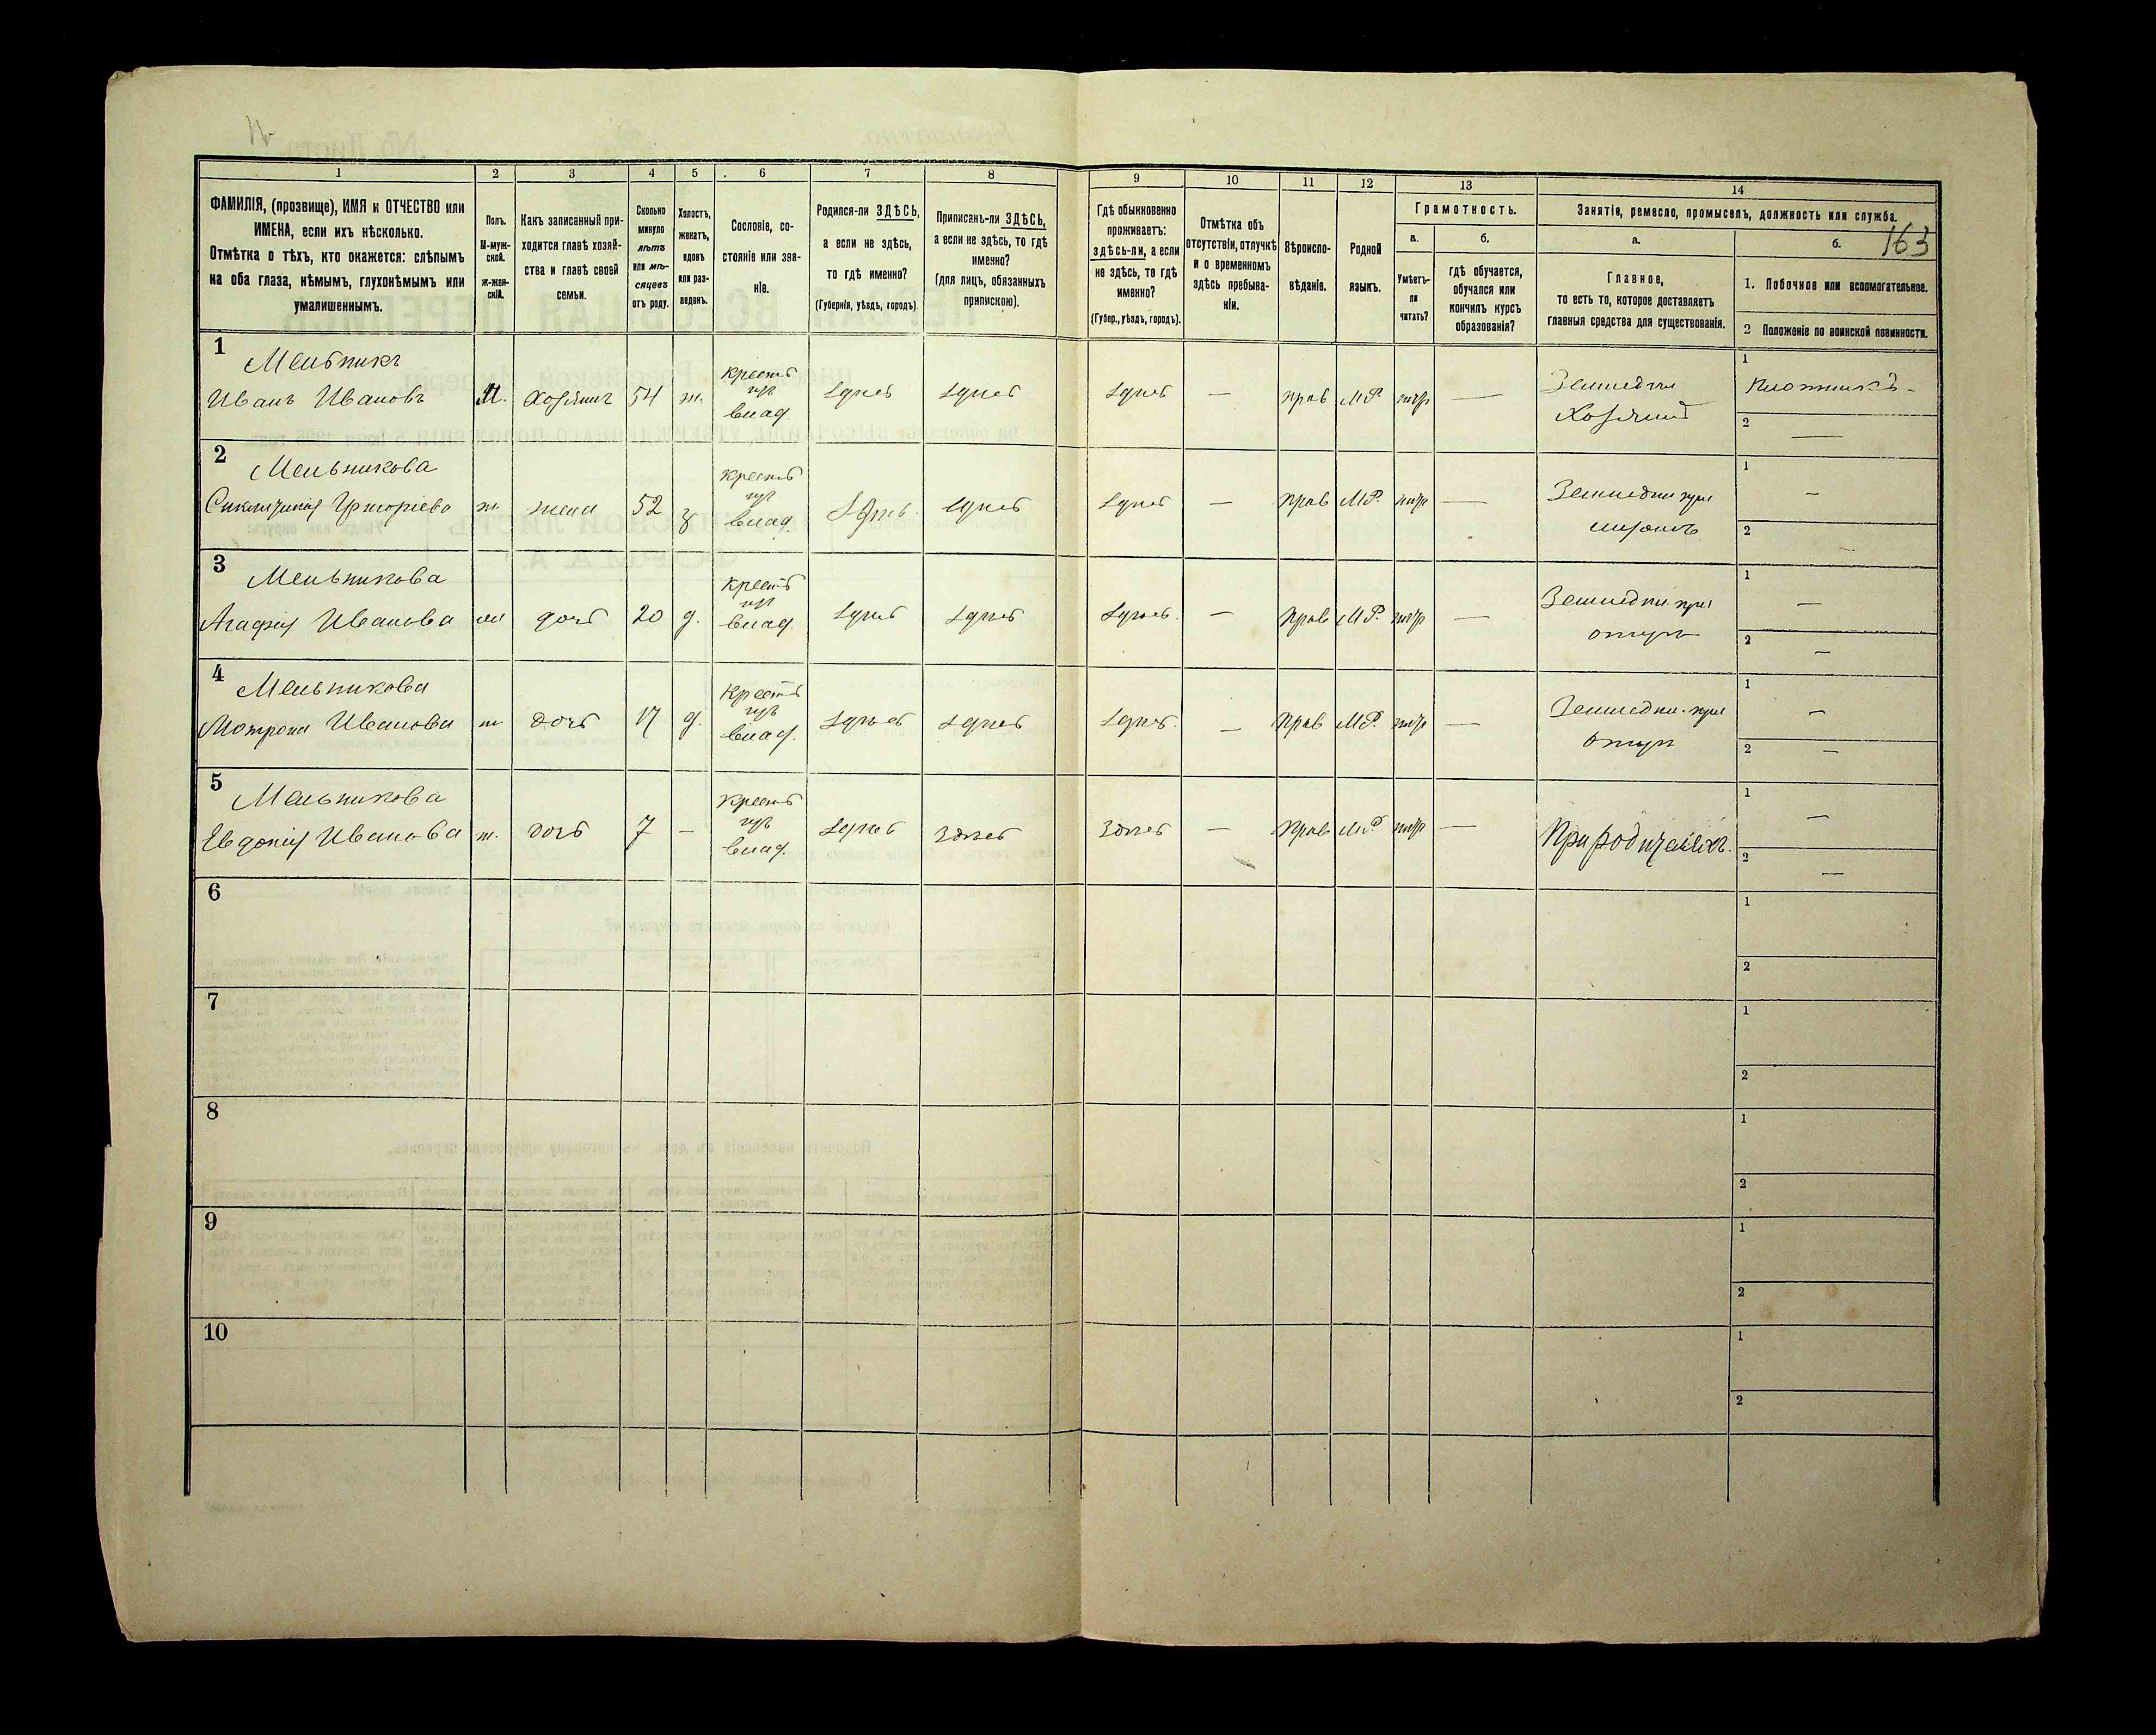 163
1 2 3 4 5 6 7 8 9 10 11 12 13 14
ФАМИЛІЯ, (прозвище), ИМЯ и ОТЧЕСТВО или
ИМЕНА, если ихъ нѣсколько.
Отмѣтка о тѣхъ, кто окажется: слѣпымъ
на оба глаза, нѣмымъ, глухонѣмымъ или
умалишеннымъ.
Полъ.
М-муж-
ской.
ж-жен-
скій.
Какъ записанный при-
ходится главѣ хозяй-
ства и главѣ своей
семьи.
Сколько
минуло
лѣтъ
или мѣ-
сяцевъ
отъ роду.
Холостъ,
женатъ,
вдовъ
или раз-
веденъ.
Сословіе, со-
стояніе или зва-
ніе.
Родился-ли ЗДѢСЬ,
а если не здѣсь,
то гдѣ именно?
(Губернія, уѣздъ, городъ).
Приписанъ-ли ЗДѢСЬ,
а если не здѣсь, то гдѣ
именно?
(для лицъ, обязанныхъ
припискою).
Гдѣ обыкновенно
проживаетъ:
здѣсь-ли, а если
не здѣсь, то гдѣ
именно?
(Губер., уѣздъ, городъ).
Отмѣтка объ
отсутствіи, отлучкѣ
и о временномъ
здѣсь пребыва-
ніи.
Вѣроиспо-
вѣданіе.
Родной
языкъ.
Грамотность.
а.
Умѣетъ-
ли
читать?
б.
гдѣ обучается,
обучался или
кончилъ курсъ
образованія?
Занятіе, ремесло, промыселъ, должность или служба.
а.
Главное,
то есть то, которое доставляетъ
главныя средства для существованія.
б.
1. Побочное или вспомогательное.
2 Положеніе по воинской повинности.
1
Мельникъ
Иванъ Ивановъ
М. хозяинъ 54 ж.
крестъ
влад.
здѣсь здѣсь здѣсь — прав М.Р. —
Хозяинъ
1
Плотникъ -
2
—
2
Мельникова
Григорьева
ж. жена 52 з
крестъ
влад.
здѣсь здѣсь здѣсь — прав М.Р. —
1
—
2
—
3
Мельникова
Агафія Иванова
ж дочь 20 д.
крестъ
влад.
здѣсь здѣсь здѣсь — прав М.Р. —
1
—
2
—
4
Мельникова
Мотрона Иванова
ж дочь 17 д.
крестъ
влад.
здѣсь здѣсь здѣсь. — прав М.Р. —
1
—
2
—
5
Мельникова
Евдокія Иванова
ж. дочь 7 —
крестъ
влад.
здѣсь здѣсь здѣсь — прав М.Р. —
При родителяхъ.
1
—
2
—
6
1
2
7
1
2
8
1
2
9
1
2
10
1
2